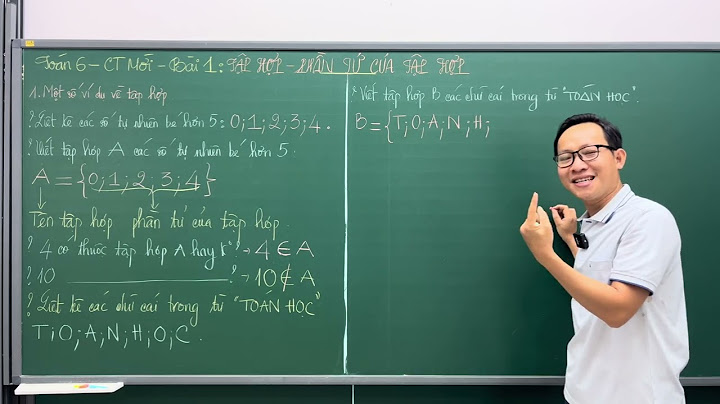 Toán 6 – CT Mới – Bài 1: TẬP HỢP – PHẦN TỬ CỦA TẬP HỢP
1. Một số ví dụ về tập hợp
? Liệt kê các số tự nhiên bé hơn 5: 0; 1; 2; 3; 4.
? Viết tập hợp A các số tự nhiên bé hơn 5.
A = {0; 1; 2; 3; 4}
Tên tập hợp phần tử của tập hợp.
? 4 có thuộc tập hợp A hay k°? → 4 ∈ A
? 10 ? → 10 ∉ A
? Liệt kê các chữ cái trong từ "TOÁN HỌC"
T; O; A; N; H; O; C.
? Viết tập hợp B các chữ cái trong từ "TOÁN HỌC".
B = {T; O; A; N; H;